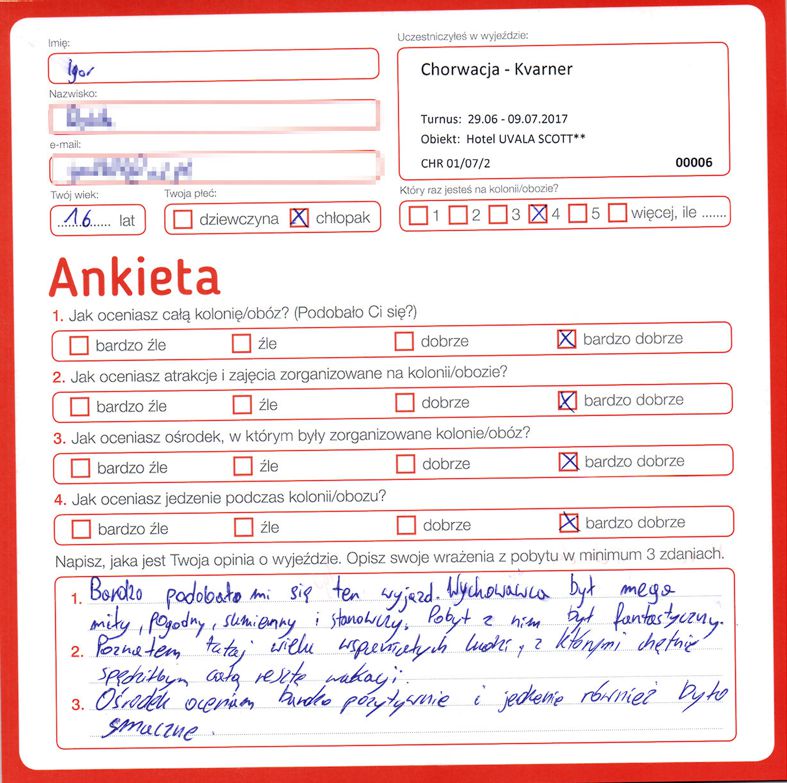 Imię:
Igor
Nazwisko:
e-mail:
Twój wiek:
16 lat
Twoja płeć:
dziewczyna
chłopak
Uczestniczyłeś w wyjeździe:
Chorwacja - Kvarner
Turnus: 29.06 - 09.07.2017
Obiekt: Hotel UVALA SCOTT**
CHR 01/07/2 00006
Który raz jesteś na kolonii/obozie?
1 2 3 4 5 więcej, ile .......
Ankieta
1. Jak oceniasz całą kolonię/obóz? (Podobało Ci się?)
bardzo źle źle dobrze bardzo dobrze
2. Jak oceniasz atrakcje i zajęcia zorganizowane na kolonii/obozie?
bardzo źle źle dobrze bardzo dobrze
3. Jak oceniasz ośrodek, w którym były zorganizowane kolonie/obóz?
bardzo źle źle dobrze bardzo dobrze
4. Jak oceniasz jedzenie podczas kolonii/obozu?
bardzo źle źle dobrze bardzo dobrze
Napisz, jaka jest Twoja opinia o wyjeździe. Opisz swoje wrażenia z pobytu w minimum 3 zdaniach.
1. Bardzo podobało mi się ten wyjazd. Wychowawca był mega
miły, pogodny, sumienny i stanowczy. Pobyt z nim był fantastyczny.
2. Poznałem tutaj wielu wspaniałych ludzi, z którymi chętnie
spędziłbym całą resztę wakacji.
3. Ośrodek oceniam bardzo pozytywnie i jedzenie również było
smaczne.